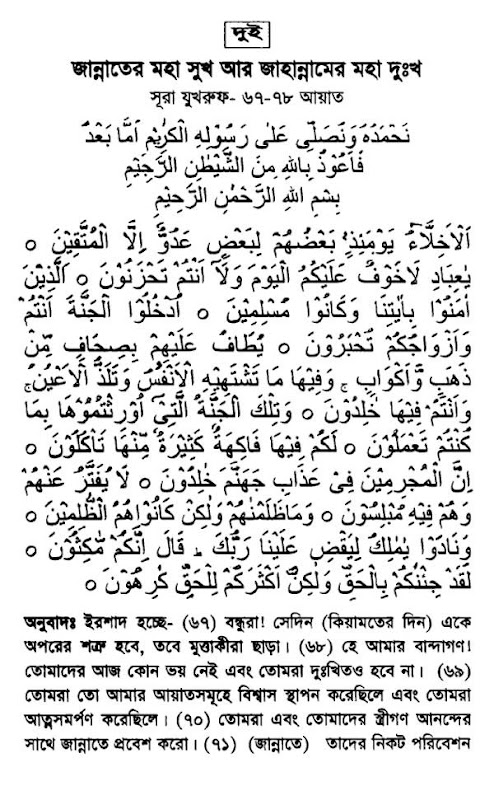 দুই
জান্নাতের মহা সুখ আর জাহান্নামের মহা দুঃখ
সূরা যুখরুফ- ৬৭-৭৮ আয়াত
نَحْمَدُهٗ وَنُصَلِّىْ عَلٰى رَسُوْلِهِ الْكَرِيْمِ اَمَّا بَعْدُ
فَاَعُوْذُ بِاللّٰهِ مِنَ الشَّيْطٰنِ الرَّجِيْمِ
بِسْمِ اللّٰهِ الرَّحْمٰنِ الرَّحِيْمِ
اَلْاَخِلَّاءُ يَوْمَئِذٍ بَعْضُهُمْ لِبَعْضٍ عَدُوٌّ اِلَّا الْمُتَّقِيْنَ ○
يٰعِبَادِ لَاخَوْفٌ عَلَيْكُمُ الْيَوْمَ وَلَآ اَنْتُمْ تَحْزَنُوْنَ ○ اَلَّذِيْنَ
اٰمَنُوْا بِاٰيٰتِنَا وَكَانُوْا مُسْلِمِيْنَ ○ اُدْخُلُوا الْجَنَّةَ اَنْتُمْ
وَاَزْوَاجُكُمْ تُحْبَرُوْنَ ○ يُطَافُ عَلَيْهِمْ بِصِحَافٍ مِّنْ
ذَهَبٍ وَّاَكْوَابٍ ۚ وَفِيْهَا مَا تَشْتَهِيْهِ الْاَنْفُسُ وَتَلَذُّ الْاَعْيُنُ ۚ
وَاَنْتُمْ فِيْهَا خٰلِدُوْنَ ○ وَتِلْكَ الْجَنَّةُ الَّتِىْٓ اُوْرِثْتُمُوْهَا بِمَا
كُنْتُمْ تَعْمَلُوْنَ ○ لَكُمْ فِيْهَا فَاكِهَةٌ كَثِيْرَةٌ مِّنْهَا تَأْكُلُوْنَ ○
اِنَّ الْمُجْرِمِيْنَ فِىْ عَذَابِ جَهَنَّمَ خٰلِدُوْنَ ○ لَا يُفَتَّرُ عَنْهُمْ
وَهُمْ فِيْهِ مُبْلِسُوْنَ ○ وَمَاظَلَمْنٰهُمْ وَلٰكِنْ كَانُوْاهُمُ الظّٰلِمِيْنَ ○
وَنَادَوْا يٰمٰلِكُ لِيَقْضِ عَلَيْنَا رَبُّكَ ؕ قَالَ اِنَّكُمْ مّٰكِثُوْنَ ○
لَقَدْ جِئْنٰكُمْ بِالْحَقِّ وَلٰكِنَّ اَكْثَرَكُمْ لِلْحَقِّ كٰرِهُوْنَ ○
অনুবাদঃ ইরশাদ হচ্ছে- (৬৭) বন্ধুরা! সেদিন (কিয়ামতের দিন) একে
অপরের শত্রু হবে, তবে মুত্তাকীরা ছাড়া। (৬৮) হে আমার বান্দাগণ!
তোমাদের আজ কোন ভয় নেই এবং তোমরা দুঃখিতও হবে না। (৬৯)
তোমরা তো আমার আয়াতসমূহে বিশ্বাস স্থাপন করেছিলে এবং তোমরা
আত্মসমর্পণ করেছিলে। (৭০) তোমরা এবং তোমাদের স্ত্রীগণ আনন্দের
সাথে জান্নাতে প্রবেশ করো। (৭১) (জান্নাতে) তাদের নিকট পরিবেশন